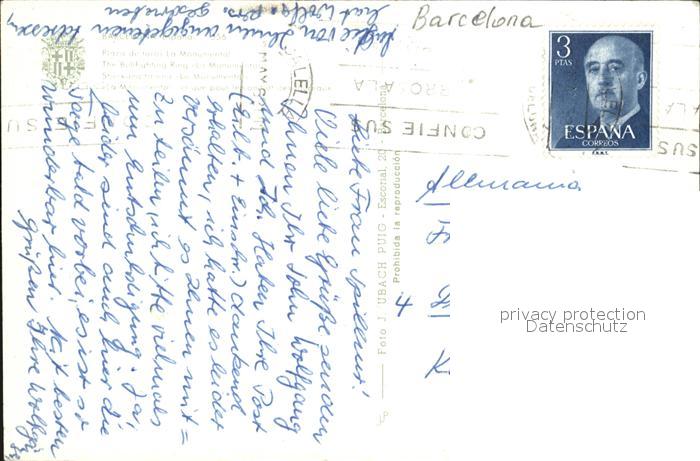 Barcelona
3
PTAS
ESPAÑA
CORREOS
F.N.M.T.
CONFIE SU
Allemania
4
privacy protection
Datenschutz
Plaza de toros La Monumental
The Bullfighting Ring «La Monumental»
Foto J. UBACH PUIG - Escorial, 20 - Barcelona
Prohibida la reproducción
Liebe Frau
Viele liebe Grüße senden
Ihnen Ihr Sohn Wolfgang
und Ich. Haben Ihre Post
(erhl. + Einschr.) dankend
erhalten, ich hatte es leider
versäumt es Ihnen mit=
zu teilen, ich bitte vielmals
um Entschuldigung. Ja,
leider sind auch hier die
Tage bald vorbei, es ist so
wunderbar hier. Mit besten
Grüßen Ihre
von Ihnen angegebenen Adressen
hat Wolfg. geschrieben